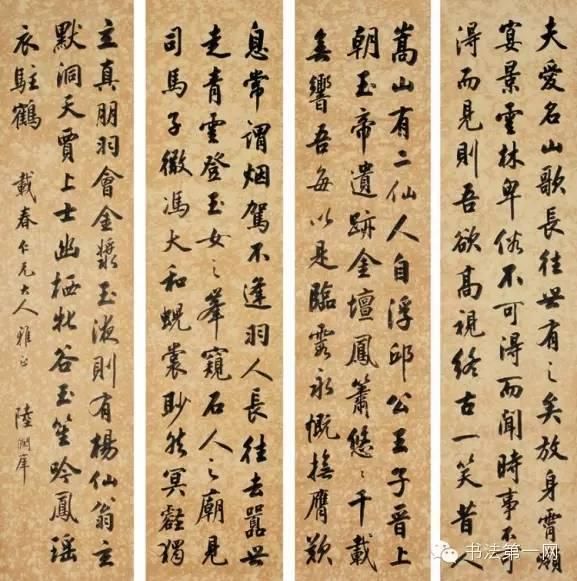 夫愛名山歌長往世有之矣放身霄嶺
宴景雲林卑俗不可得而聞時事不可
得而見則吾欲高視終古一笑昔人
嵩山有二仙人自浮邱公王子晉上
朝玉帝遺跡金壇鳳簫悠〻千載
無響吾每以是臨霞永慨撫膺歎
息常謂烟駕不逢羽人長往去囂世
走青雲登玉女之峯窺石人之廟見
司馬子微馮大和蜺裳眇然冥壑獨
立真朋羽會金漿玉液則有楊仙翁玄
默洞天賈上士幽栖牝谷玉笙吟鳳瑶
衣駐鶴 載春仁兄大人雅正 陸潤庠
书法第一网